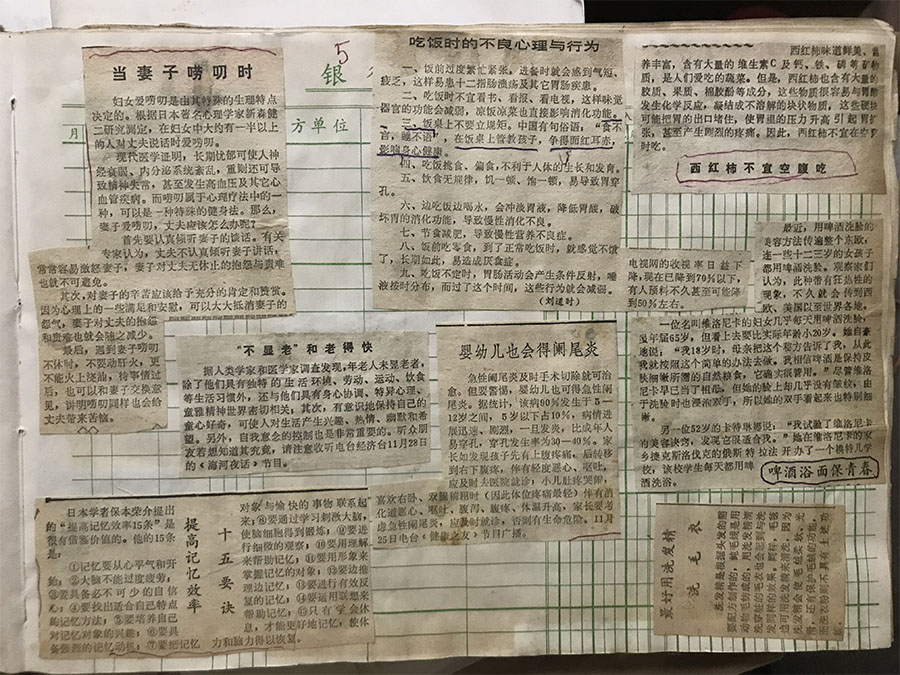 5
银
月
方单位
当妻子唠叨时
妇女爱唠叨是由其特殊的生理特点
决定的。根据日本著名心理学家新森健
二研究测定，在妇女中大约有一半以上
的人对丈夫说话时爱唠叨。
现代医学证明，长期忧郁可使人神
经衰弱、内分泌系统紊乱，重则还可导
致精神失常，甚至发生高血压及其它心
血管疾病。而唠叨属于心理疗法中的一
种，可以是一种特殊的健身法。那么，
妻子爱唠叨，丈夫应该怎么办呢？
首先要认真倾听妻子的谈话。有关
专家认为，丈夫不认真倾听妻子讲话，
常常容易激怒妻子，妻子对丈夫无休止的抱怨与责难
也就不可避免。
其次，对妻子的辛苦应该给予充分的肯定和赞赏。
因为心理上的一些满足和安慰，可以大大抵消妻子的
怨气，妻子对丈夫的抱怨
和责难也就会随之减少。
最后，遇到妻子唠叨
不休时，不要动肝火，更
不能火上浇油，待事情过
后，也可以和妻子交换意
见，讲明唠叨同样也会给
丈夫带来苦恼。
吃饭时的不良心理与行为
一、饭前过度繁忙紧张，进餐时就会感到气短、
疲乏，这样易患十二指肠溃疡及其它胃肠疾患。
二、吃饭时不宜看书、看报、看电视，这样味觉
器官的功能会减弱，凉饭凉菜也直接影响消化功能。
三、饭桌上不要立规矩。中国有句俗语：“食不
言，睡不语”，在饭桌上管教孩子，争得面红耳赤，
影响身心健康。
四、吃饭挑食、偏食，不利于人体的生长和发育。
五、饮食无规律，饥一顿、饱一顿，易导致胃穿
孔。
六、边吃饭边喝水，会冲淡胃液，降低胃酸，破
坏胃的消化功能，导致慢性消化不良。
七、节食减肥，导致慢性营养不良症。
八、饭前吃零食，到了正常吃饭时，就感觉不饿
了，长期如此，易造成厌食症。
九、吃饭不定时，胃肠活动会产生条件反射，唾
液按时分布，而过了这个时间，这些行为就会减弱。
（刘建时）
西红柿味道鲜美、营
养丰富，含有大量的维生素C及钙、铁、磷等矿物
质，是人们爱吃的蔬菜。但是，西红柿也含有大量的
胶质、果质、棉胶酚等成分，这些物质很容易与胃酸
发生化学反应，凝结成不溶解的块状物质，这些硬块
可能把胃的出口堵住，使胃里的压力升高引起胃扩
张，甚至产生剧烈的疼痛，因此，西红柿不宜在空腹
时吃。
西红柿不宜空腹吃
电视网的收视率日益下
降，现在已降到70％以下，
有人预料不久甚至可能降
到50％左右。
最近，用啤酒洗脸的
美容方法传遍整个东欧，
连一些十二三岁的女孩子
都用啤酒洗脸。观察家们
认为，此种带有狂热性的
现象，不久就会传到西
欧、美国以至世界各地。
一位名叫维洛尼卡的妇女几乎每天用啤酒洗脸，
虽年届65岁，但看上去要比实际年龄小20岁。她自豪
地说：“我18岁时，母亲把这个秘方告诉了我，从此
我就按照这个简单的方法去做。我相信啤酒是保持皮
肤细嫩所需的自然粮食，它确实很管用。”尽管维洛
尼卡早已当了祖母，但她的脸上却几乎没有皱纹，由
于洗脸时也浸润双手，所以她的双手看起来也特别细
嫩。
另一位52岁的卡特琳娜说：“我试验了维洛尼卡
的美容诀窍，发现它很适合我。”她在维洛尼卡的家
乡捷克斯洛伐克的俄斯特拉法开办了一个模特儿学
校，该校学生每天都用啤
酒洗浴。
啤酒浴面保青春
“不显老”和老得快
据人类学家和医学家调查发现，年老人未见老者，
除了他们具有独特的生活环境、劳动、运动、饮食
等生活习惯外，还与他们具有身心协调、特异心理、
童雅精神世界密切相关。其次，有意识地保持自己的
童心好奇，可使人对生活产生兴趣、热情、幽默和希
望。另外，自我意念的控制也是非常重要的。听众朋
友若想知道其究竟，请注意收听电台经济台11月28日
的《海河夜话》节目。
婴幼儿也会得阑尾炎
急性阑尾炎及时手术切除就可治
愈。但要警惕，婴幼儿也可得急性阑
尾炎。据统计，该病90％发生于5—
12岁之间，5岁以下占10％，病情进
展迅速、剧烈，一旦发炎，比成年人
易穿孔，穿孔发生率为30—40％。家
长如发现孩子先有上腹疼痛，后转移
到右下腹疼，伴有轻度恶心、呕吐，
应及时去医院就诊，小儿肚疼哭闹，
喜欢右卧、双腿稍屈时（因此体位疼痛最轻）伴有消
化道恶心、呕吐、腹泻、腹疼、体温升高，家长要考
虑急性阑尾炎，应及时就诊，否则有生命危险。11月
25日电台《健康之友》节目广播。
日本学者保本荣介提出
的“提高记忆效率15条”是
很有借鉴价值的。他的15条
是：
①记忆要从心平气和开
始；②大脑不能过度疲劳；
③要具备必不可少的自信
心；④要找出适合自己特点
的记忆方法；⑤要培养自己
对记忆对象的兴趣；⑥要具
备强烈的记忆动机；⑦要把记忆
提高记忆效率
十五要诀
对象与愉快的事物联系起
来；⑧要通过学习刺激大脑，
使脑细胞得到锻炼；⑨要进
行细致的观察；⑩要用理解
来帮助记忆；⑪要用形象来
掌握记忆的对象；⑫要边推
理边记忆；⑬要进行有效反
复的记忆；⑭要运用联想来
帮助记忆；⑮只有学会休
息，才能更好地记忆，使体
力和脑力得以恢复。
最好用洗发精
洗毛衣